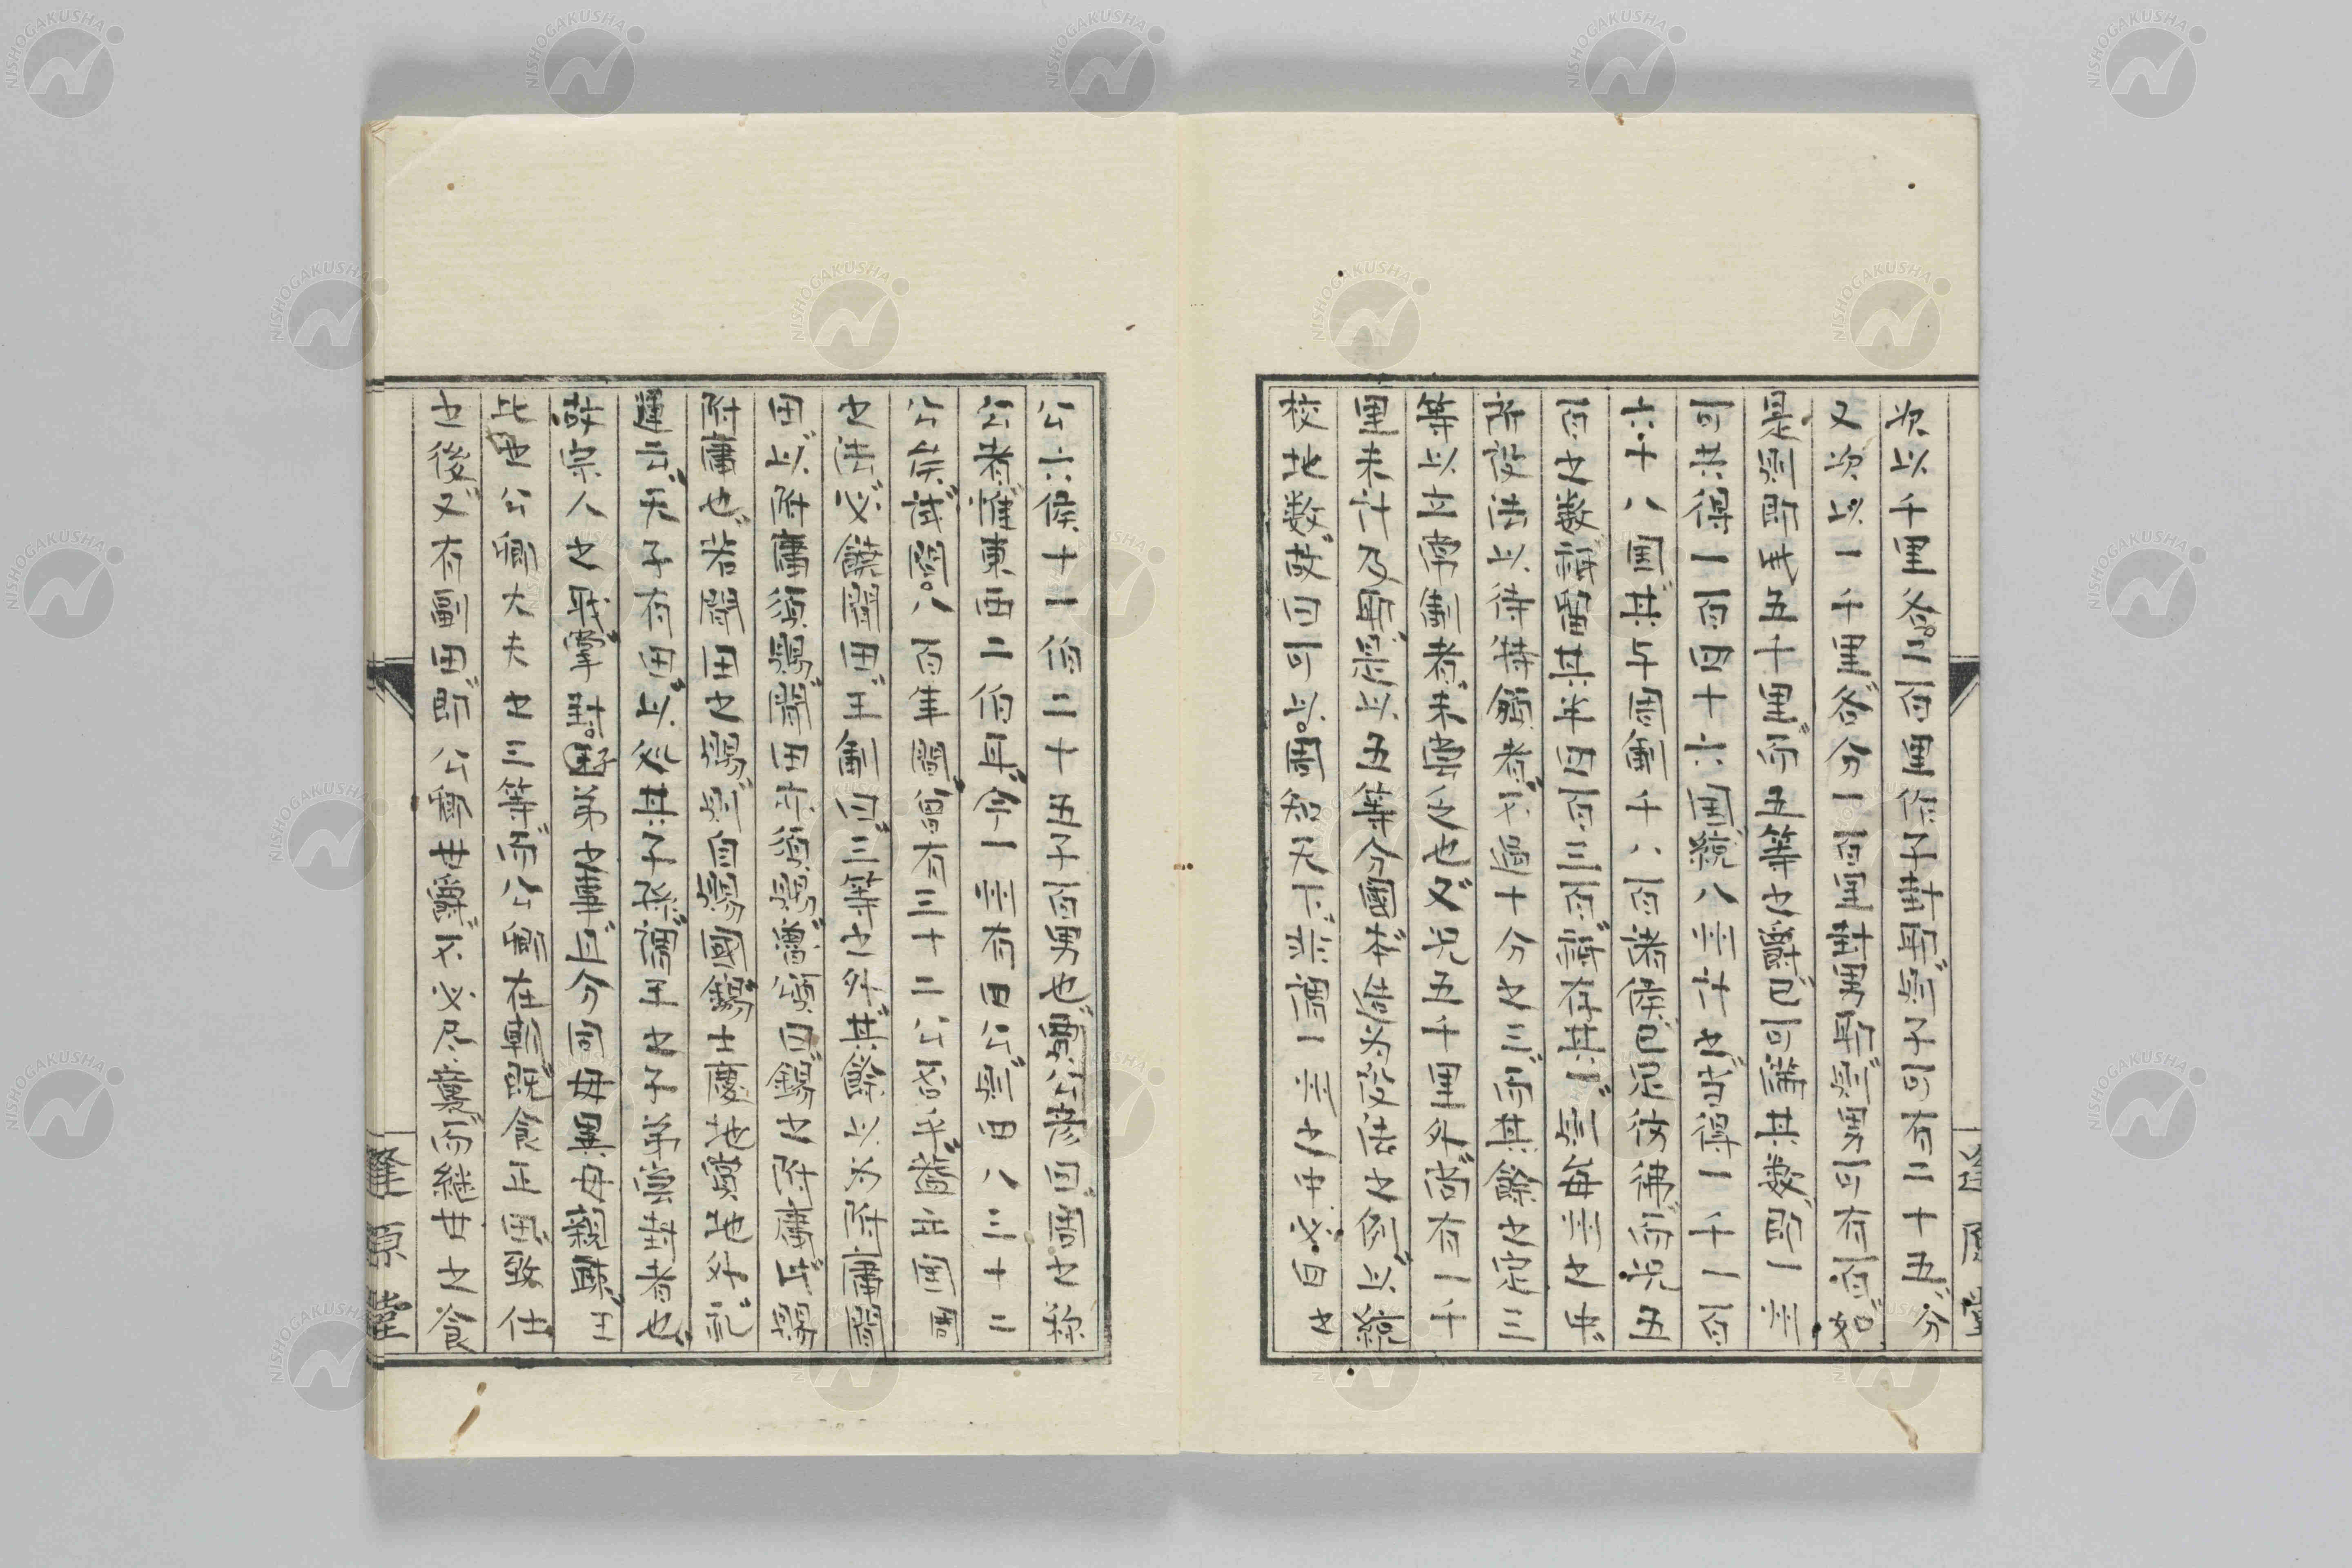 次以千里各二百里作子封評則子可有二十五分
又次以一千里各分一百里封男評則男可有百如
是則即此五千里而五等之爵已可講其數即一州
可共得一百四十六國統八州計之當得一千一百
六十八國其与周制千八百諸侯已足彷彿而況五
百之數設留其半曰百三百設存其一則每州之中
所設法以待特爵者不過十分之三而其餘之定三
等以立常制者未嘗乏也又況五千里外尚有一千
里未計及耶是以五等分國本借为設法之例以統
校地數故曰可以周知天下非謂一州之中必自之
公六侯十一伯二十五子百男也賈公彥曰周之称
公者惟東西二伯耳今一州有曰公則曰八三十二
公矣試問八百年間曾有三十二公否乎蓋在國圖
之法必饒閒田王制曰三等之外其餘以为附庸閒
田以附庸須賜閒田亦須賜魯頌曰錫之附庸此錫
附庸也若閒田之賜則自賜國錫士慶地賞地外記
運云天子有田以处其子孫謂王之子弟嘗封者也
故宗人之職掌封子弟之事且分同母異母親疎王
此其公卿大夫之三等而公卿在朝既食正田致仕
之後又有副田即公卿世爵不必尽襲而継世之食
逢原堂